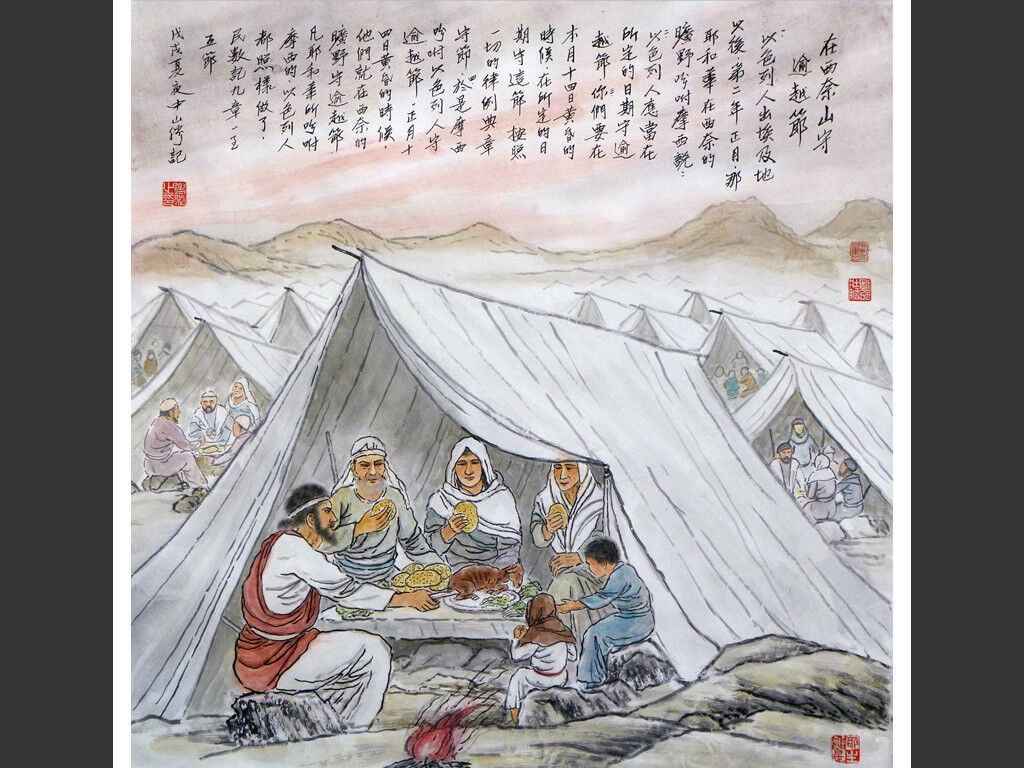 在西奈山守
逾越節
以色列人出埃及地
以後.第二年正月.那
耶和華在西奈的
曠野吩咐摩西說：
以色列人應當在
所定的日期守逾
越節.你們要在
本月十四日黃昏的
時候.在所定的日
期守這節.按照
一切的律例典章
守節.於是摩西
吩咐以色列人守
逾越節.正月十
四日黃昏的時候.
他們就在西奈的
曠野守逾越節.
凡耶和華所吩咐
摩西的.以色列人
都照樣做了.
民數記九章一至
五節
戊戌夏夜中山 記